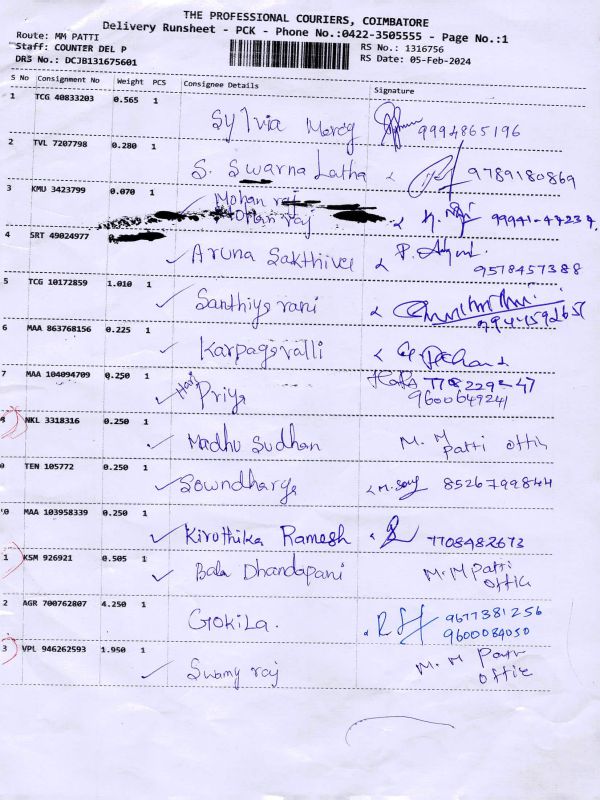 THE PROFESSIONAL COURIERS, COIMBATORE
Delivery Runsheet - PCK - Phone No.:0422-3505555 - Page No.:1
Route: MM PATTI
Staff: COUNTER DEL P
DRS No.: DCJB131675601
RS No.: 1316756
RS Date: 05-Feb-2024
S No Consignment No Weight PCS Consignee Details Signature
1 TCG 40833203 0.565 1 Sylvia Mercy 9994865196
2 TVL 7207798 0.280 1 S. Swarna Latha 9789180869
3 KMU 3423799 0.070 1 Mohan raj
Mohan raj
4 SRT 49024977 1 Aruna Sakthivel 9578457388
5 TCG 10172859 1.010 1 Santhiya rani
6 MAA 863768156 0.225 1 Karpagavalli
7 MAA 104094709 0.250 1 Hari Priya
9600649241
NKL 3318316 0.250 1 Madhu Sudhan M. M Patti office
TEN 105772 0.250 1 Sowndharya 8526799844
0 MAA 103958339 0.250 1 Kiruthika Ramesh 7708482673
1 KSM 926921 0.505 1 Bala Dhandapani M. M Patti office
2 AGR 700762807 4.250 1 Gokila. 9677381256
9600084050
3 VPL 946262593 1.950 1 Swamy raj M. M Patti office